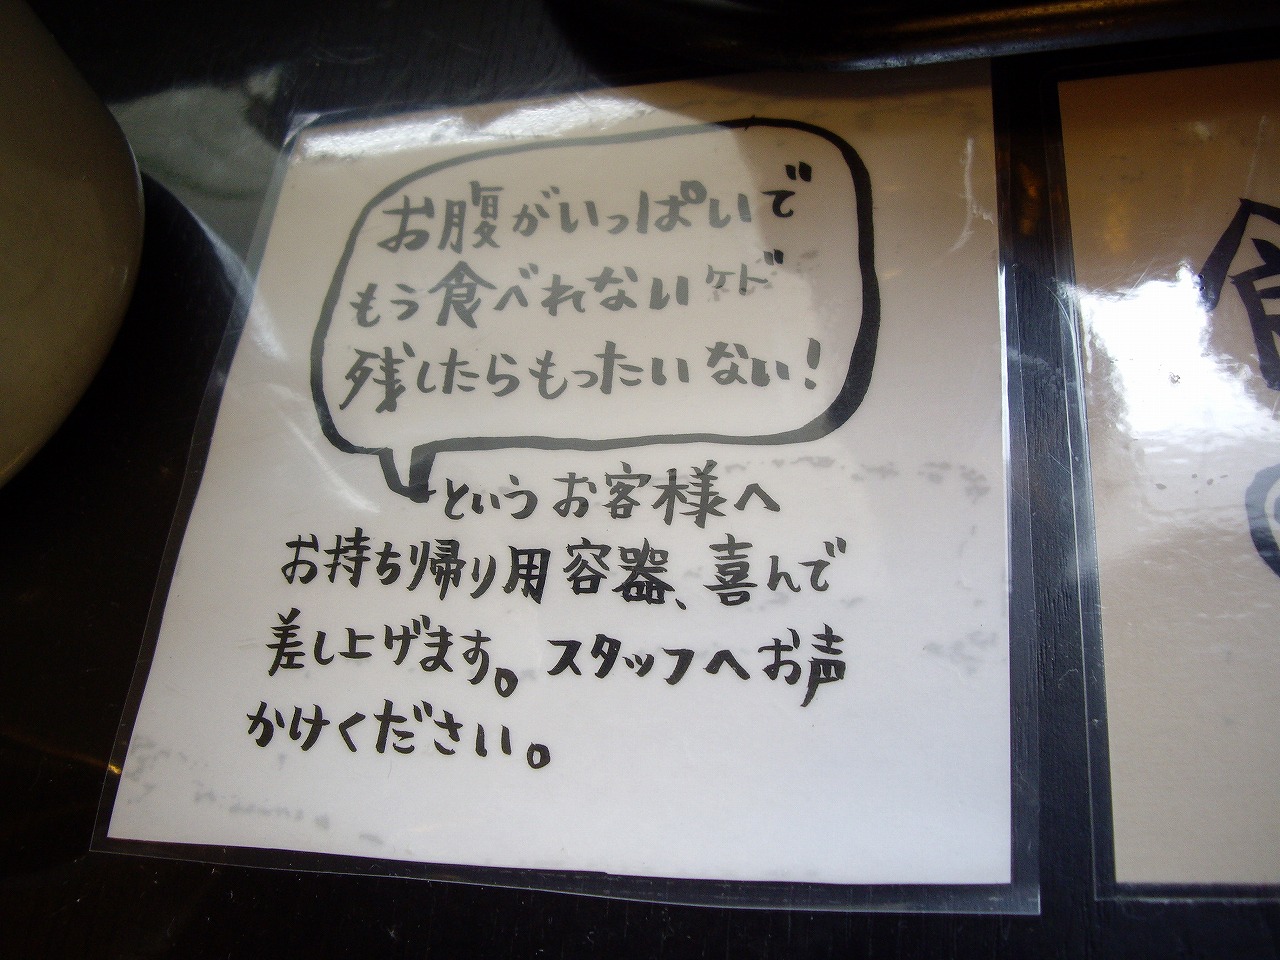 お腹がいっぱいで
もう食べれないケド
残したらもったいない!
というお客様へ
お持ち帰り用容器、喜んで
差し上げます。スタッフへお声
かけください。